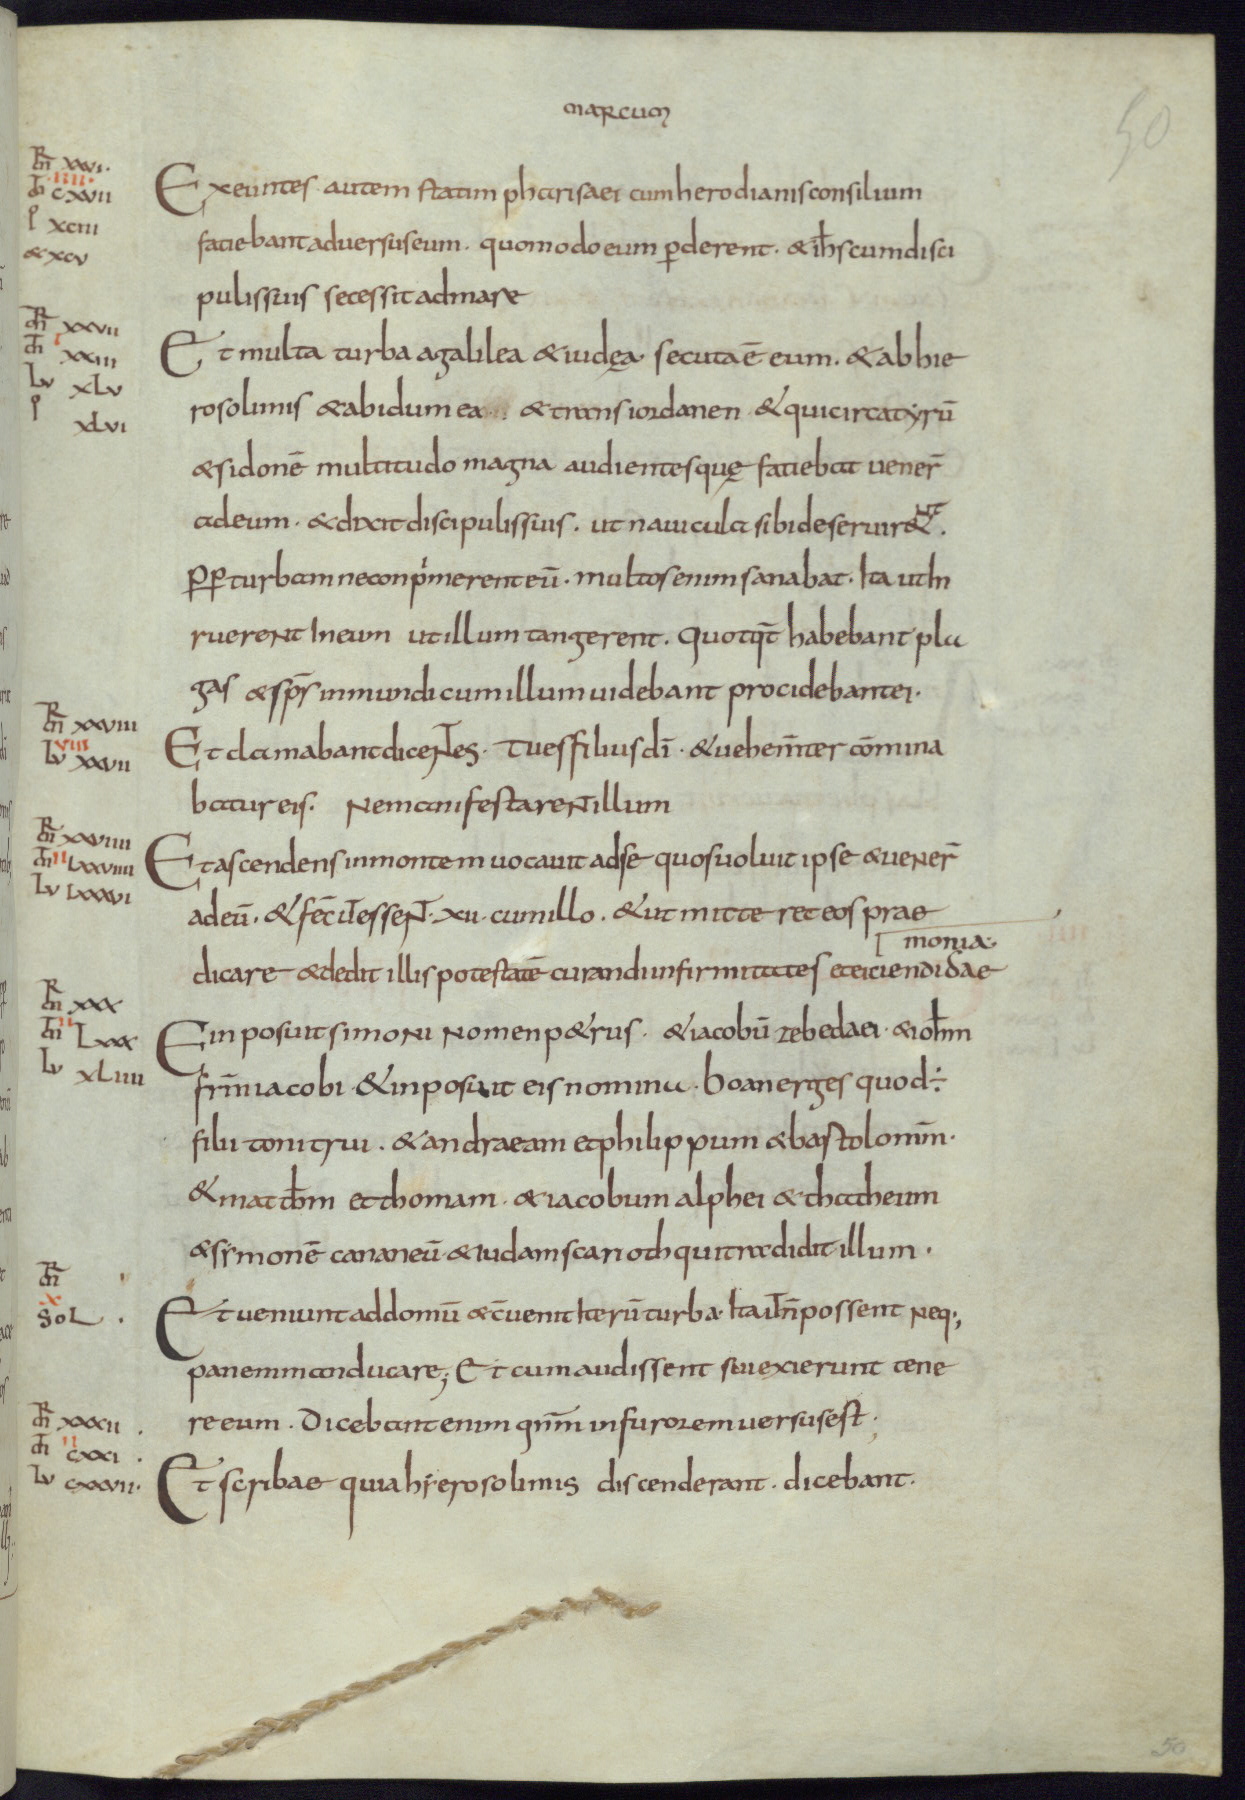 marcum
50
Exeuntes autem statim pharisaei cum herodianis consilium
faciebant adversus eum. quomodo eum p̄derent. & ih̅s cum disci
pulis suis secessit ad mare
Et multa turba a galilea & iudęa secuta ē eum. & ab hie
rosolimis & ab idumea & trans iordanen & qui circa tyrū
& sidonē multitudo magna audientes quę faciebat uener̄
ad eum. & dixit discipulis suis. ut nauicula sibi deseruir&.
pp̄ turbam ne conp̍merent eū. multos enim sanabat. Ita ut In
ruerent In eum ut illum tangerent. Quotq̄t habebant pla
gas & sp̄s inmundi cum illum uidebant procidebant ei.
Et clamabant dicentes. Tu es filius dī. & uehem̄ter cōmina
batur eis. Ne manifestarent illum
Et ascendens in montem uocauit ad se quos uoluit ipse & uener̄
ad eū. & fec̄ ut essent .xii. cum illo. & ut mitteret eos prae
monia.
dicare & dedit illis potestatē curandi infirmitates et eiciendi dae
Et inposuit simoni nomen p&rus. & iacobū zebedaei. & ioh̅m
fr̄m iacobi. & inposuit eis nomina. boanerges quod ÷
filii tonitrui. & andraeam et philippum & bartolom̄m.
& matth̅m et thomam. & iacobum alphei & thatheum
& symonē cananeū & iudam scarioth qui tradidit illum.
Et ueniunt ad domū & c̄uenit Iterū turba. Ita ut n̄ possent neq;
panem manducare; Et cum audissent sui exierunt tene
re eum. Dicebant enim qm̄ in furorem uersus est.
Et scribae qui a hierosolimis discenderant. dicebant.
xxvi.
iiii
cxvii
xciii
& xcv
xxvii
i
xxiii
Lv xLv
xLvi
xxviii
viii
Lv xxvii
xxviiii
ii
Lxxviiii
Lv Lxxxvi
xxx
ii
Lxxx
Lv xLiiii
x
SoL.
xxxii
ii
cxxi
Lv cxxvii.
50